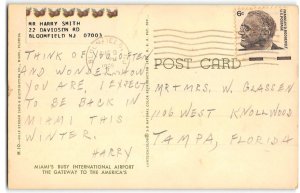 MR HARRY SMITH
22 DAVIDSON RD
BLOOMFIELD NJ 07003
THINK OF YOU OFTEN
AND WONDER HOW
YOU ARE, I EXPECT
TO BE BACK IN
MIAMI THIS
WINTER.
HARRY
MIAMI'S BUSY INTERNATIONAL AIRPORT
THE GATEWAY TO THE AMERICA'S
6¢
POST CARD
MR + MRS. W. GLASSEN
1106 WEST KNOLLWOOD
TAMPA, FLORIDA